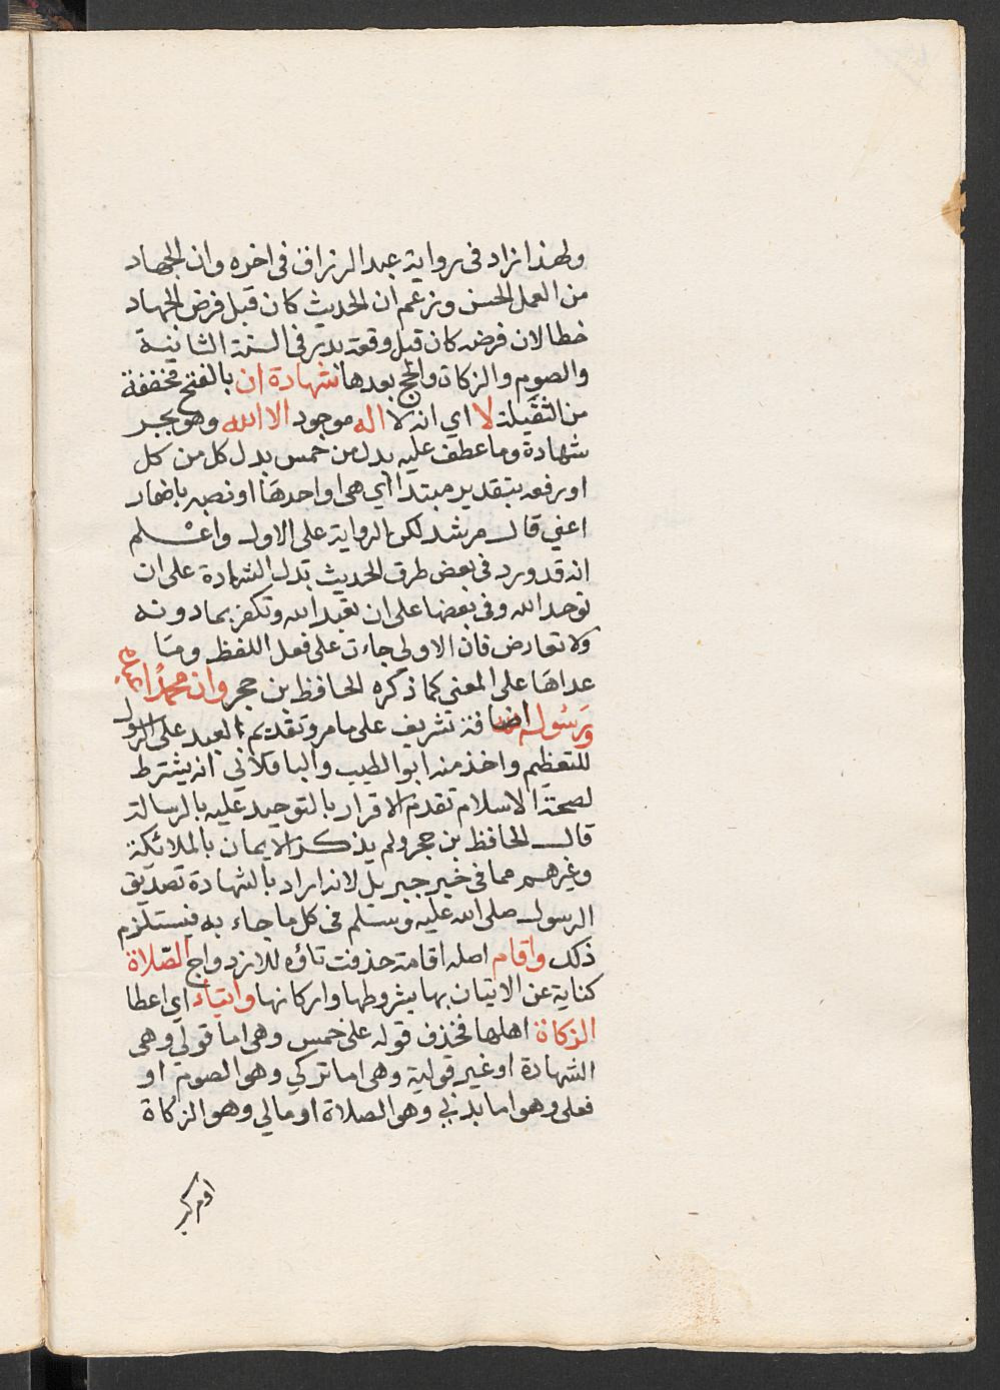 ولهذا زاد في رواية عبد الرزاق في اخره وان الجهاد
من العمل الحسن وزعم ان الحديث كان قبل فرض الجهاد
خطا لان فرضه كان قبل وقعة بدر في السنة الثانية
والصوم والزكاة والحج بعدها شهادة ان بالفتح مخففة
من الثقيلة لا اي انه لا اله موجود الا الله وهو بجر
شهادة وما عطف عليه بدل من خمس بدل كل من كل
او رفعه بتقدير مبتدا اي هي او احدها او نصبه باضمار
اعني قال مرشد لكن الرواية على الاول واعلم
انه قد ورد في بعض طرق الحديث بدل الشهادة على ان
توحد الله وفي بعضها على ان تعبد الله وتكفر بما دونه
ولا تعارض فان الاولى جاءت على فعل اللفظ وما
عداها على المعنى كما ذكره الحافظ بن حجر وان محمدا عبده
ورسوله اضافة تشريف على ما مر وتقديم العبد على الرسول
للتعظيم واخذ منه ابو الطيب والباقلاني انه يشترط
لصحة الاسلام تقدم الاقرار بالتوحيد عليه بالرسالة
قال الحافظ بن حجر ولم يذكر الايمان بالملائكة
وغيرهم مما في خبر جبريل لانه اراد بالشهادة تصديق
الرسول صلى الله عليه وسلم في كل ما جاء به فيستلزم
ذلك واقام اصله اقامة حذفت تاؤه للازدواج الصلاة
كناية عن الاتيان بها بشروطها واركانها وايتاء اي اعطا
الزكاة اهلها فحذف قوله على خمس وهي اما قولي وهي
الشهادة او غير قولية وهي اما تركي وهو الصوم او
فعلي وهو اما بدني وهو الصلاة او مالي وهو الزكاة
او مركب